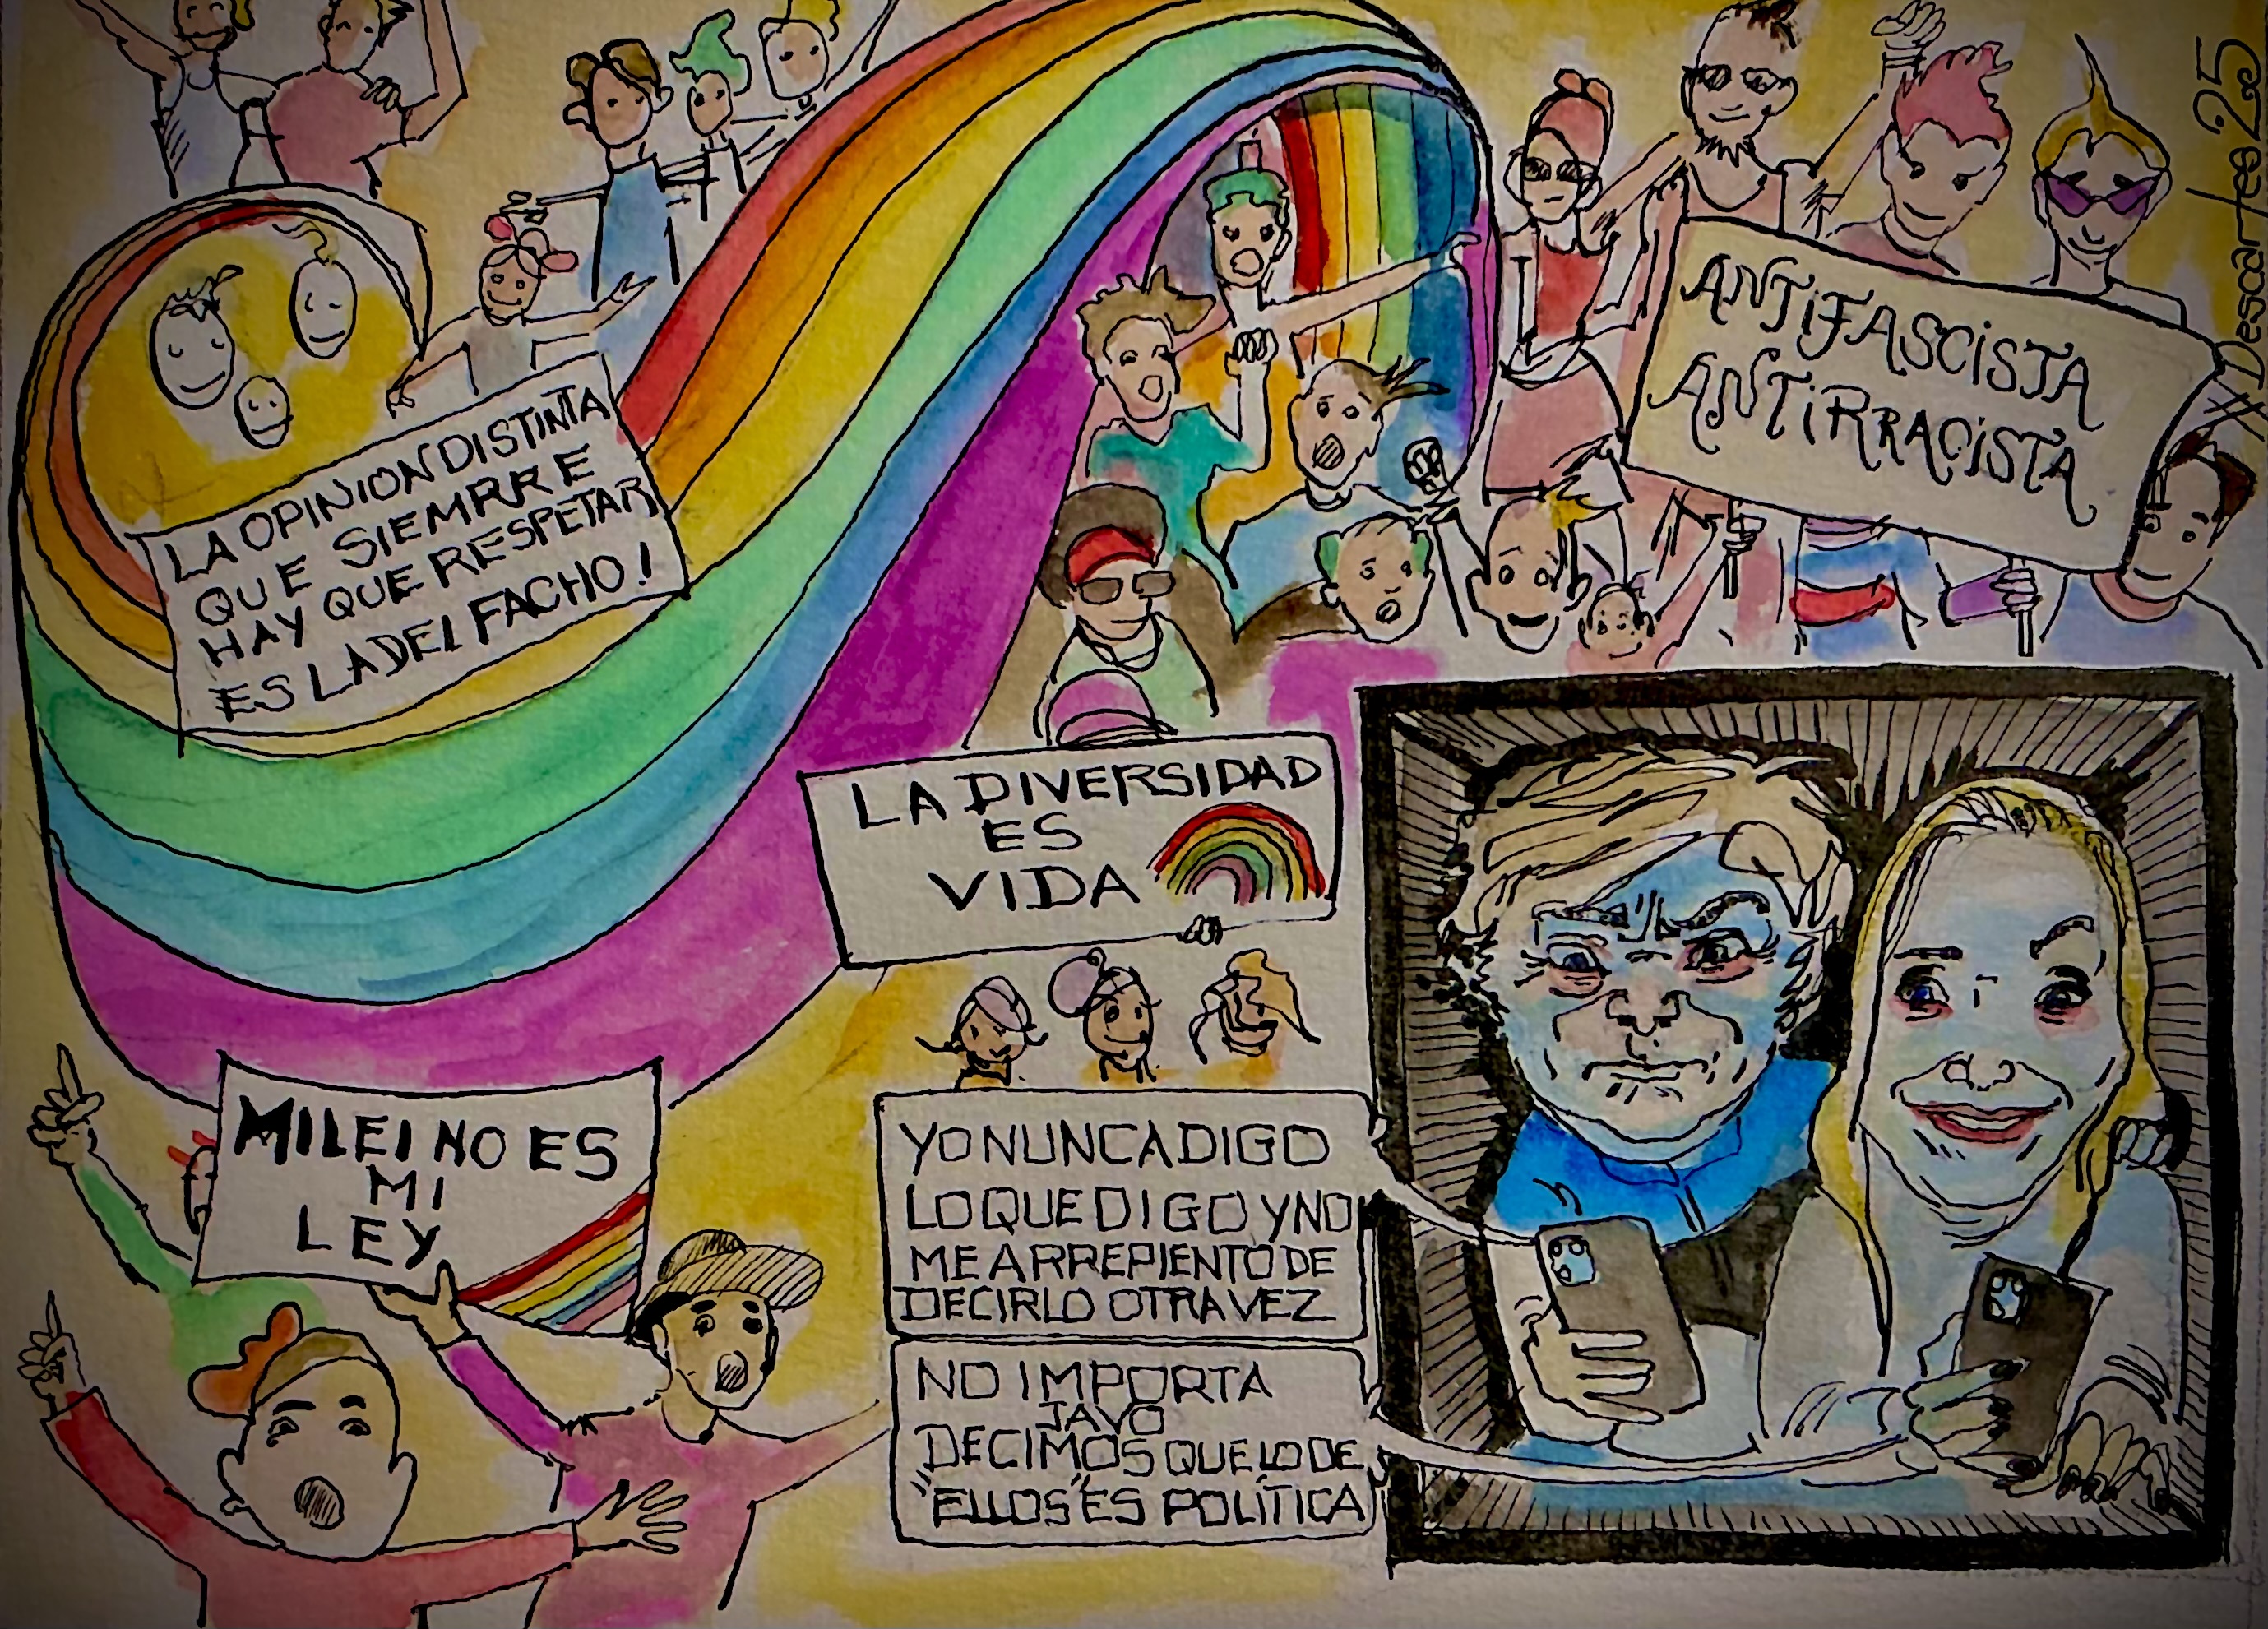 XDescartes25
ANTiFASCiSTA
ANTiRRACiSTA
LA OPINION DISTINTA
QUE SIEMRRE
HAY QUE RESPETAR
ES LA DEL FACHO!
LA DIVERSIDAD
ES
VIDA
MILEI NO ES
MI
LEY
YO NUNCA DIGO
LO QUE DIGO Y NO
ME ARREPIENTO DE
DECIRLO OTRA VEZ
NO IMPORTA
JAVO
DECIMOS QUE LO DE
"ELLOS" ES POLÍTICA